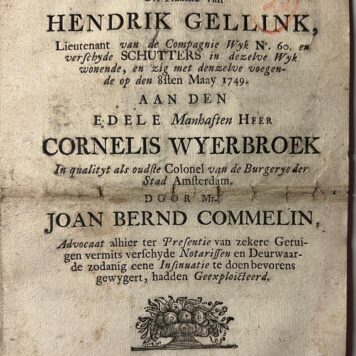 Uit Naame van
HENDRIK GELLINK,
Lieutenant van de Compagnie Wyk Nº. 60. en
verschyde SCHUTTERS in dezelve Wyk
wonende, en zig met denzelve voegen-
de op den 8sten Maay 1749.
AAN DEN
EDELE Manhaften HEER
CORNELIS WYERBROEK
In qualityt als oudste Colonel van de Burgerye der
Stad Amsterdam.
DOOR Mr.
JOAN BERND COMMELIN,
Advocaat alhier ter Presentie van zekere Getui-
gen vermits verschyde Notarissen en Deurwaar-
de zodanig eene Insinuatie te doen bevorens
gewygert, hadden Geexploicteerd.